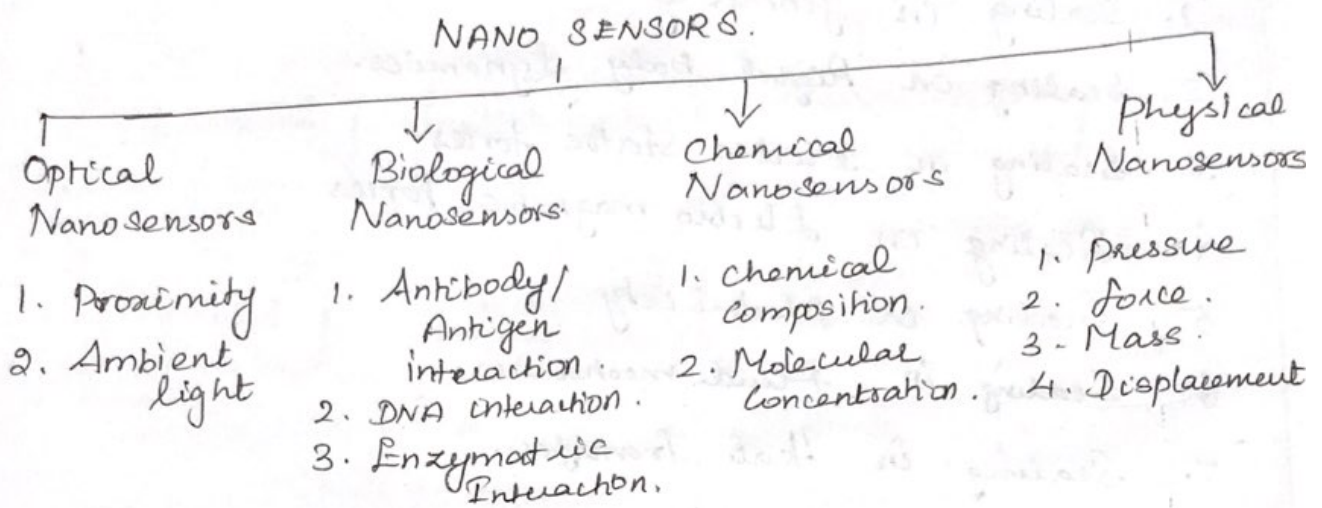 NANO SENSORS.
Optical
Nanosensors
1. Proximity
2. Ambient
light
Biological
Nanosensors.
1. Antibody/
Antigen
interaction
2. DNA interaction.
3. Enzymatic
Interaction.
Chemical
Nanosensors
1. Chemical
Composition.
2. Molecular
Concentration.
Physical
Nanosensors
1. Pressure
2. force.
3. Mass.
4. Displacement